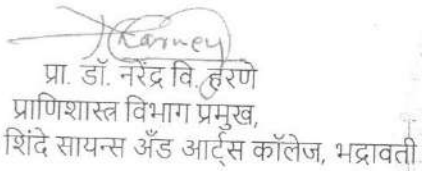 प्रा. डॉ. नरेंद्र वि. हरणे
प्राणिशास्त्र विभाग प्रमुख,
शिंदे सायन्स अँड आर्ट्स कॉलेज, भद्रावती